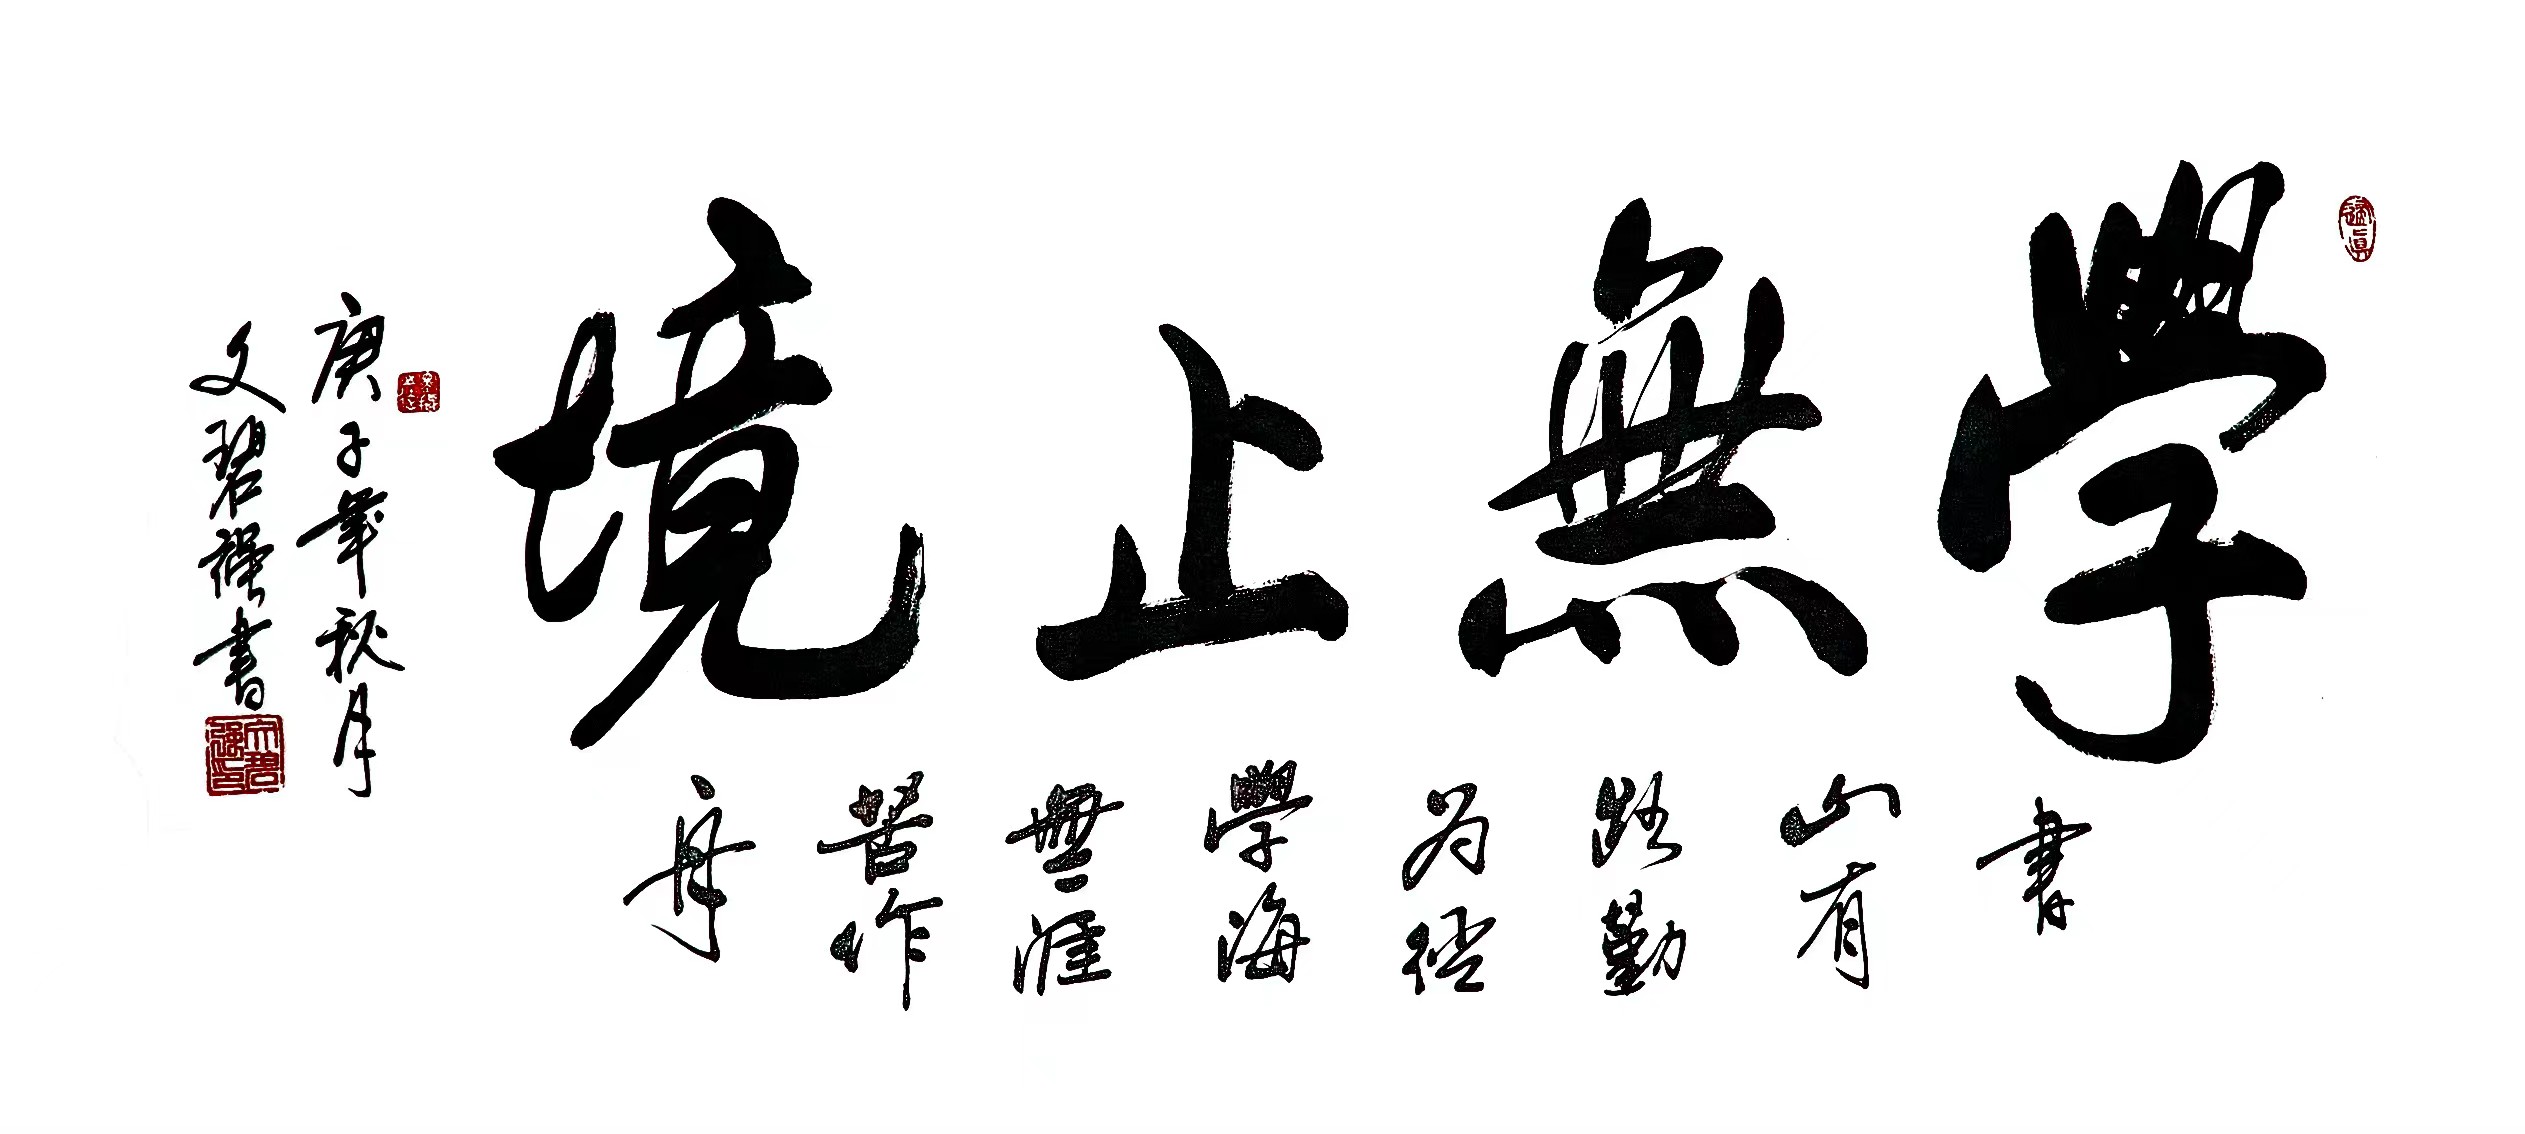 學無止境
書山有路勤為徑學海無涯苦作舟
庚子年秋月
文碧强書
文碧强印